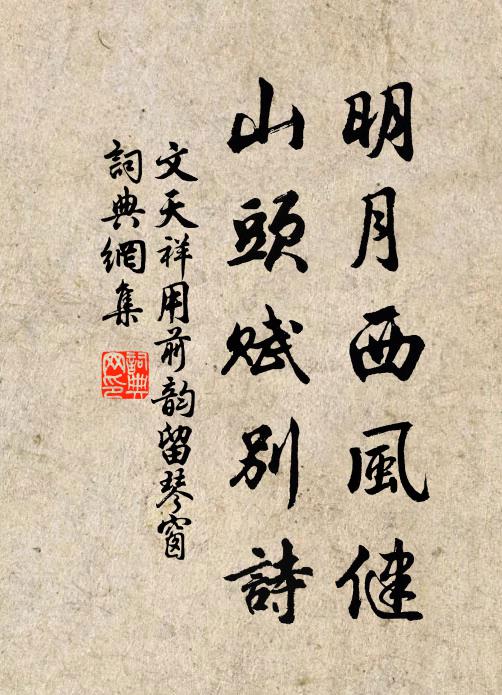 明月西風健
山頭賦別詩
文天祥用前韵留琴窗
詞典網集
詞典
网印